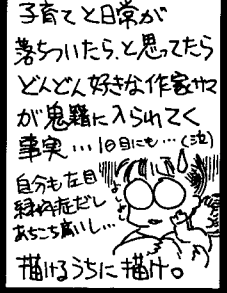 子育てと日常が
落ちついたら、と思ってたら
どんどん好きな作家サマ
が鬼籍に入られてく
事実…1日にも…(泣)
自分も左目
緑内症だし
あちこち痛いし…
描けるうちに描け。